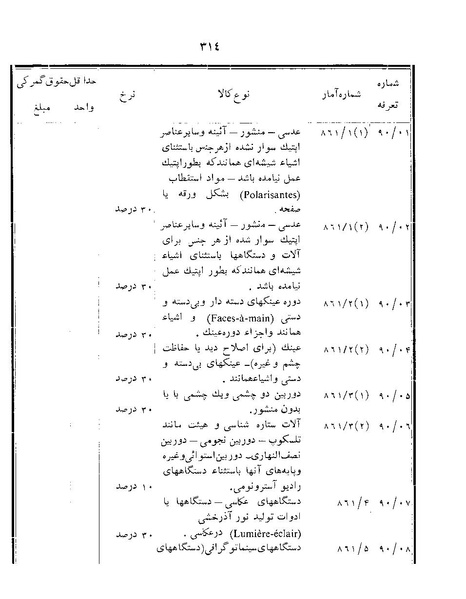 ۳۱٤
شماره تعرفه شماره آمار نوع کالا نرخ حداقل حقوق گمرکی
واحد مبلغ
۹۰/۰۱ ۸٦۱/۱(۱) عدسی – منشور – آئینه وسایر عناصر
اپتیک سوار نشده از هر جنس باستثنای
اشیاء شیشه‌ای همانند که بطور اپتیک
عمل نیامده باشد – مواد استقطاب
(Polarisantes) بشکل ورقه یا
صفحه . ۳۰ درصد
۹۰/۰۲ ۸٦۱/۱(۲) عدسی – منشور – آئینه وسایر عناصر
اپتیک سوار شده از هر جنس برای
آلات و دستگاهها باستثنای اشیاء
شیشه‌ای همانند که بطور اپتیک عمل
نیامده باشد . ۳۰ درصد
۹۰/۰۳ ۸٦۱/۲(۱) دوره عینکهای دسته دار وبی‌دسته و
دستی (Faces-à-main) و اشیاء
همانند واجزاء دوره عینک . ۳۰ درصد
۹۰/۰۴ ۸٦۱/۲(۲) عینک (برای اصلاح دید یا حفاظت
چشم و غیره)– عینکهای بی‌دسته و
دستی واشیاء همانند . ۳۰ درصد
۹۰/۰۵ ۸٦۱/۳(۱) دوربین دو چشمی ویک چشمی با یا
بدون منشور. ۳۰ درصد
۹۰/۰٦ ۸٦۱/۳(۲) آلات ستاره شناسی و هیئت مانند
تلسکوب – دوربین نجومی – دوربین
نصف‌النهاری– دوربین استوائی وغیره
وپایه‌های آنها باستثناء دستگاههای
رادیو آسترونومی. ۱۰ درصد
۹۰/۰۷ ۸٦۱/۴ دستگاههای عکاسی – دستگاهها یا
ادوات تولید نور آذرخشی
(Lumière-éclair) درعکاسی . ۳۰ درصد
۹۰/۰۸ ۸٦۱/۵ دستگاههای سینماتوگرافی (دستگاههای